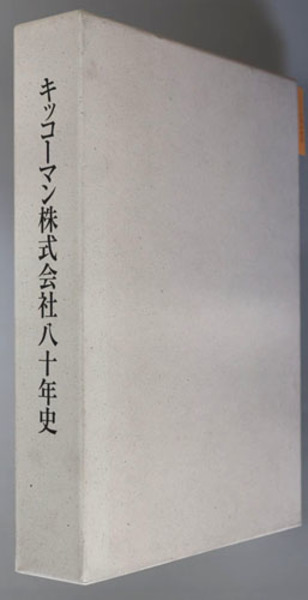 キッコーマン株式会社八十年史